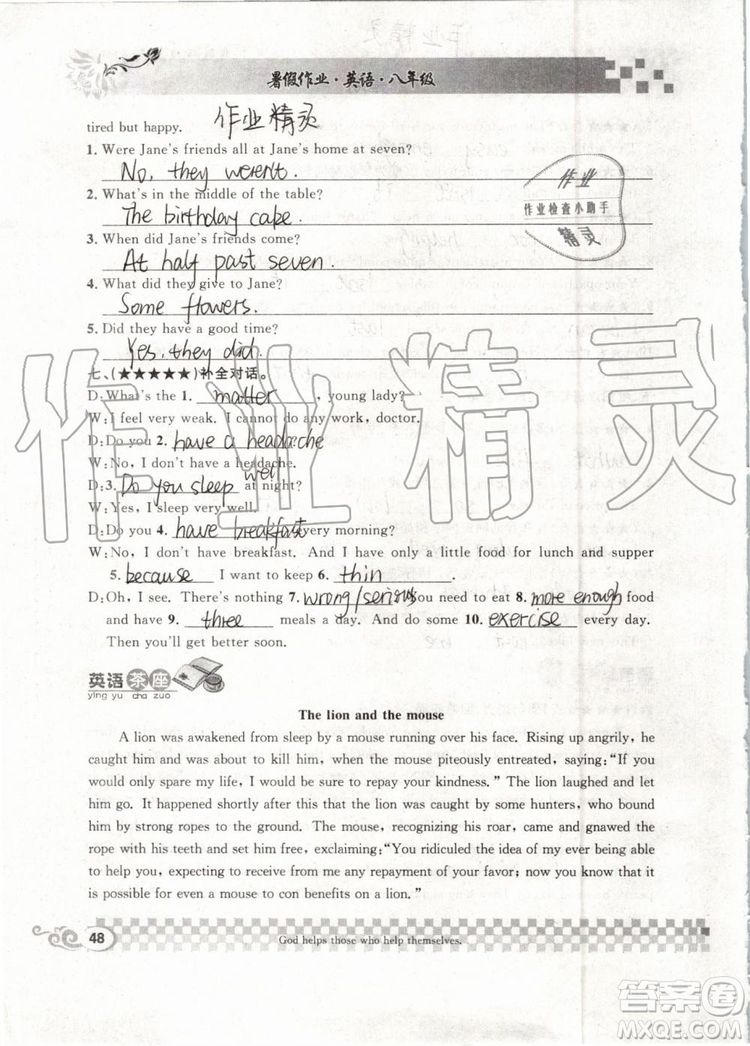 暑假作业·英语·八年级
tired but happy. 作业精灵
1. Were Jane's friends all at Jane's home at seven?
No, they weren't.
2. What's in the middle of the table?
The birthday cake.
3. When did Jane's friends come?
At half past seven.
4. What did they give to Jane?
Some flowers.
5. Did they have a good time?
Yes, they did.
作业
作业检查小助手
精灵
七、(★★★★★)补全对话。
D: What's the 1. matter, young lady?
W: I feel very weak. I cannot do any work, doctor.
D: Do you 2. have a headache
W: No, I don't have a headache.
D: 3. Do you sleep well at night?
W: Yes, I sleep very well.
D: Do you 4. have breakfast every morning?
W: No, I don't have breakfast. And I have only a little food for lunch and supper
5. because I want to keep 6. thin.
D: Oh, I see. There's nothing 7. wrong/serious you need to eat 8. more enough food
and have 9. three meals a day. And do some 10. exercise every day.
Then you'll get better soon.
作业精灵
英语茶座
ying yu cha zuo
The lion and the mouse
A lion was awakened from sleep by a mouse running over his face. Rising up angrily, he
caught him and was about to kill him, when the mouse piteously entreated, saying: "If you
would only spare my life, I would be sure to repay your kindness." The lion laughed and let
him go. It happened shortly after this that the lion was caught by some hunters, who bound
him by strong ropes to the ground. The mouse, recognizing his roar, came and gnawed the
rope with his teeth and set him free, exclaiming: "You ridiculed the idea of my ever being able
to help you, expecting to receive from me any repayment of your favor; now you know that it
is possible for even a mouse to con benefits on a lion."
48
God helps those who help themselves.
答案圈
MXQE.COM